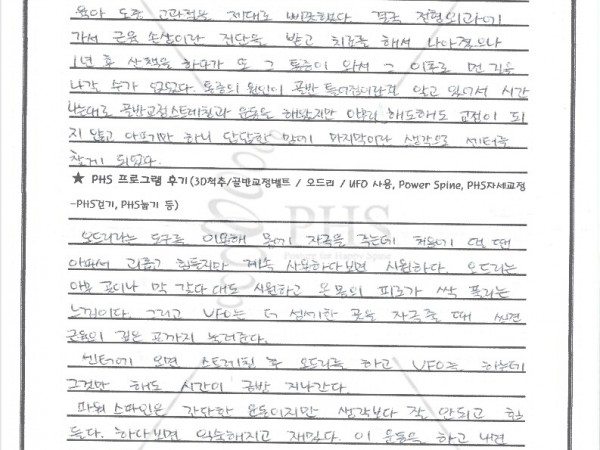 육아 도중 고관절을 제대로 삐끗했다. 결국 정형외과에
가서 근육 손상이란 진단을 받고 치료를 해서 나아졌으나
1년 후 산책을 하다가 또 그 통증이 와서 그 이후로 먼 길을
나갈 수가 없었다. 통증의 원인이 골반 틀어짐이라고 알고 있어서 시간
나는대로 골반교정스트레칭과 운동을 해봤지만 아무리 해도해도 교정이 되
지 않고 아프기만 하니 답답한 맘에 마지막이라 생각으로 센터를
찾게 되었다.
★ PHS 프로그램 후기(3D척추/골반교정벨트 / 오드리 / UFO 사용, Power Spine, PHS자세교정
-PHS걷기, PHS눕기 등)
PHS
오드리라는 도구를 이용해 몸에 자극을 주는데 처음에 할 땐
아파서 괴롭고 힘든지만 계속 사용하다보면 시원하다. 오드리는
아무 곳이나 막 갖다 대도 시원하고 온 몸의 피로가 싹 풀리는
느낌이다. 그리고 UFO는 더 섬세한 곳을 자극 줄 때 쓰면
근육의 깊은 곳까지 눌러준다.
센터에 오면 스트레칭 후 오드리를 하고 UFO를 하는데
그것만 해도 시간이 금방 지나간다.
파워 스파인은 간단한 운동이지만 생각보다 잘 안되고 힘
든다. 하다보면 익숙해지고 재밌다. 이 운동을 하고 나면